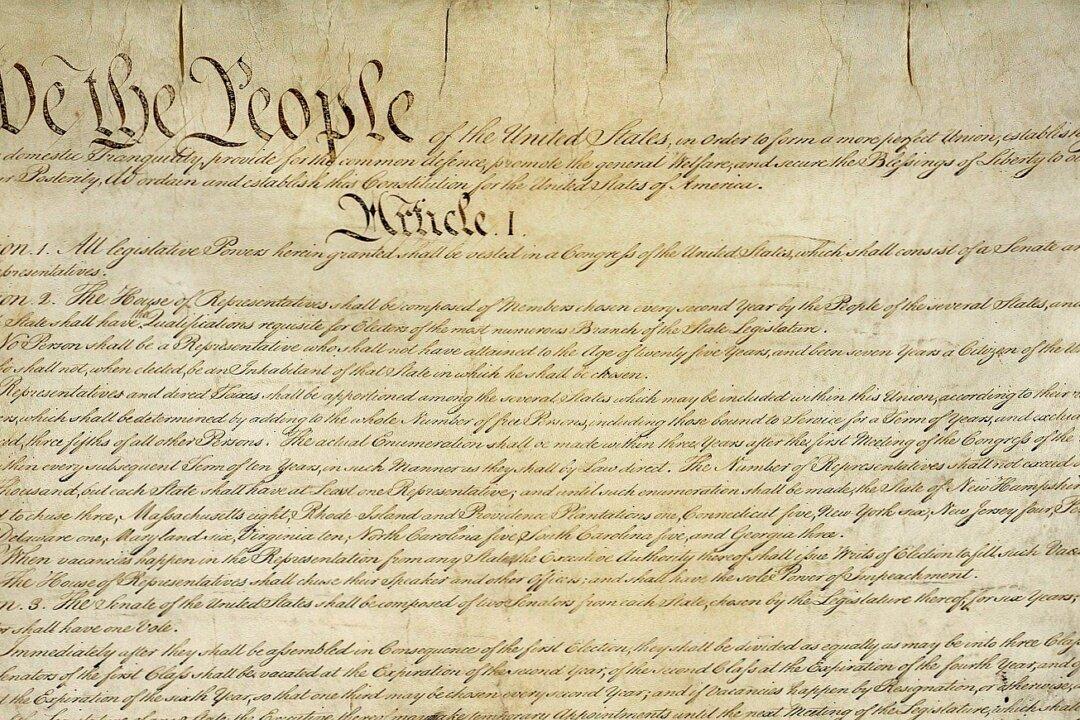 We the People of the United States, in Order to form a more perfect Union, establish
domestic Tranquility, provide for the common defence, promote the general Welfare, and secure the Blessings of Liberty to ou
r Posterity, do ordain and establish this Constitution for the United States of America.
Article. I.
ion. 1. All legislative Powers herein granted shall be vested in a Congress of the United States, which shall consist of a Senate an
epresentatives.
ion. 2. The House of Representatives shall be composed of Members chosen every second Year by the People of the several States, and
State shall have the Qualifications requisite for Electors of the most numerous Branch of the State Legislature.
No Person shall be a Representative who shall not have attained to the Age of twenty five Years, and been seven Years a Citizen of the Un
ho shall not, when elected, be an Inhabitant of that State in which he shall be chosen.
Representatives and direct Taxes shall be apportioned among the several States which may be included within this Union, according to their re
ers, which shall be determined by adding to the whole Number of free Persons, including those bound to Service for a Term of Years, and exclud
xed, three fifths of all other Persons. The actual Enumeration shall be made within three Years after the first Meeting of the Congress of the
thin every subsequent Term of ten Years, in such Manner as they shall by Law direct. The Number of Representatives shall not exceed
Thousand, but each State shall have at Least one Representative; and until such enumeration shall be made, the State of New Hampshire
d to chuse three, Massachusetts eight, Rhode Island and Providence Plantations one, Connecticut five, New York six, New Jersey four, Pe
Delaware one, Maryland six, Virginia ten, North Carolina five, South Carolina five, and Georgia three.
When vacancies happen in the Representation from any State, the Executive Authority thereof shall issue Writs of Election to fill such Vaca
The House of Representatives shall chuse their Speaker and other Officers; and shall have the sole Power of Impeachment.
n. 3. The Senate of the United States shall be composed of two Senators from each State, chosen by the Legislature thereof, for six Years;
or shall have one Vote.
Immediately after they shall be assembled in Consequence of the first Election, they shall be divided as equally as may be into three Class
enators of the first Class shall be vacated at the Expiration of the second Year, of the second Class at the Expiration of the fourth Year, and of
the Expiration of the sixth Year, so that one third may be chosen every second Year; and if Vacancies happen by Resignation, or otherwise, d
Legislature of any State, the Executive thereof may make temporary Appointments until the next Meeting of the Legislature, which shall